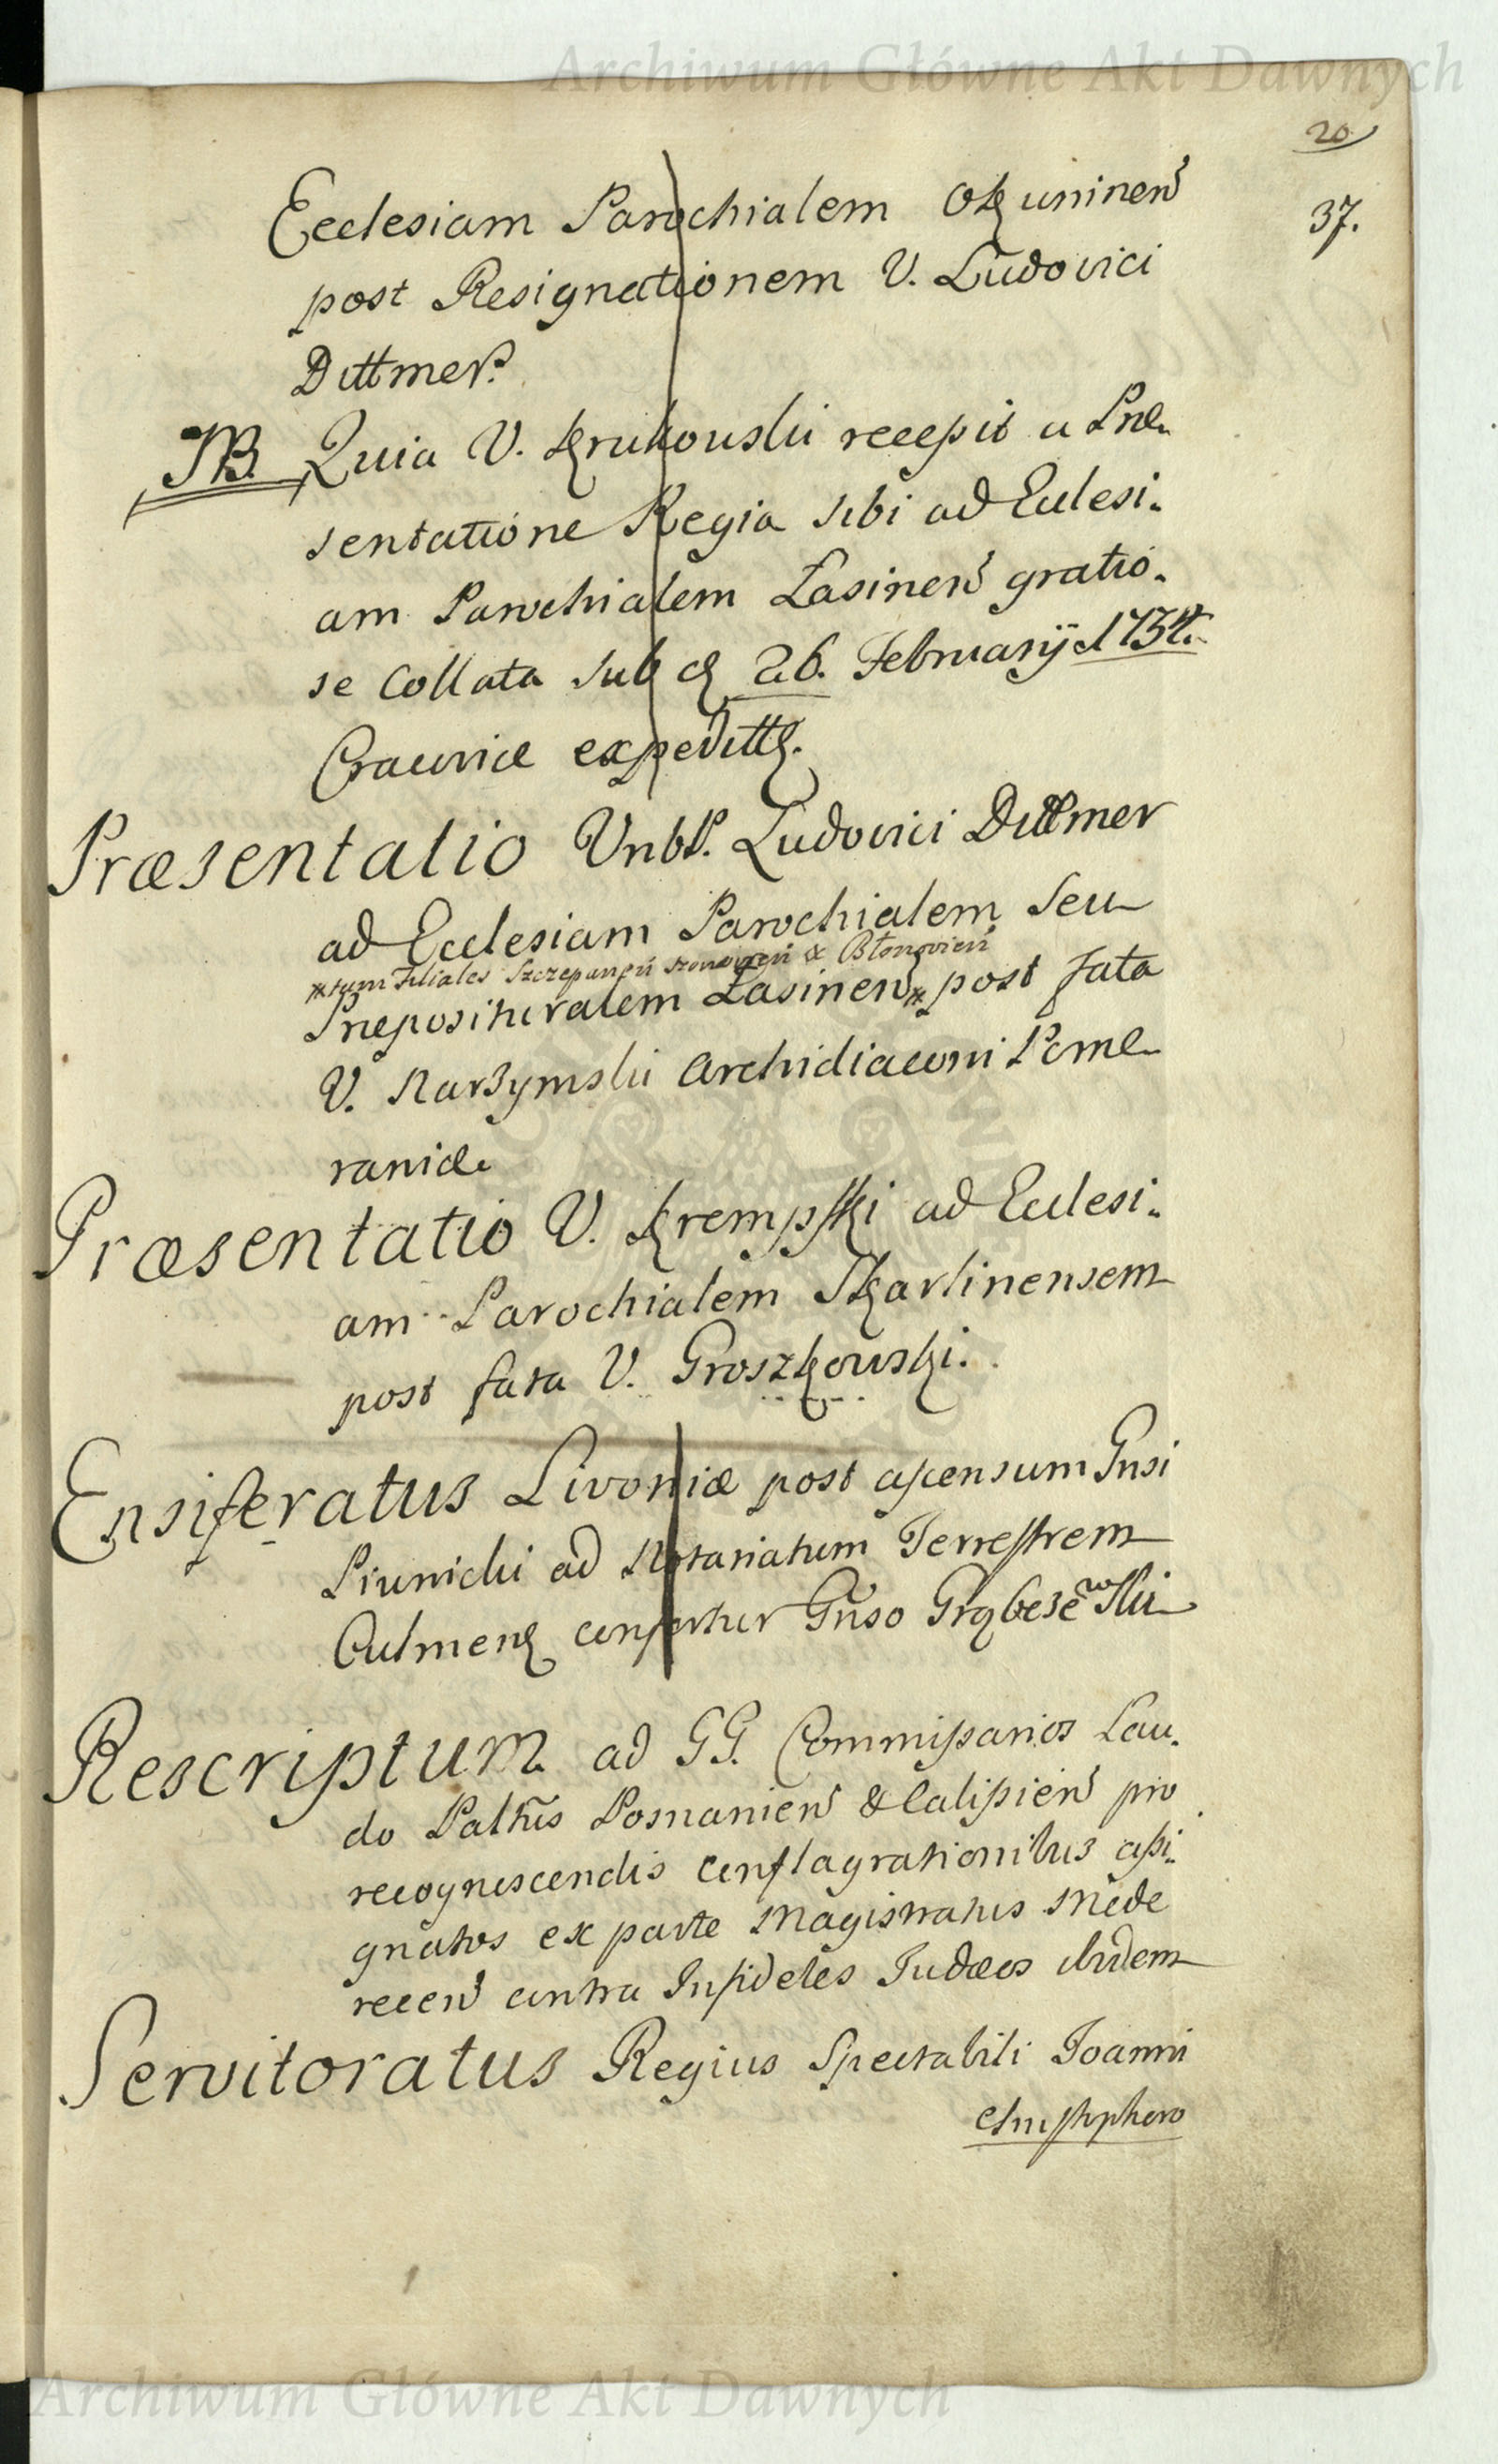 Archiwum Główne Akt Dawnych
20
37.
Ecclesiam Parochialem Okuninen̄
post Resignationem V. Ludovici
Dittmer.
NB. Quia V. Krukowski recepit a Præ-
sentatione Regia sibi ad Ecclesi-
am Parochialem Łasinen̄ gratio-
se Collata sub d 26. Februarij 1734.
Cracoviæ expedit
Præsentatio Vnbl. Ludovici Dittmer
ad Ecclesiam Parochialem seu
* tum Filiales Szczepanień szonowień & Błonovień
Præposituralem Łasinen * post fata
V. Narzymski Archidiaconi Pome-
raniæ.
Præsentatio V. Krempski ad Ecclesi-
am Parochialem Skarlinensem
post fata V. Groszkowski.
Ensiferatus Livoniæ post ascensum Gnsi
Piwnicki ad Notariatum Terrestrem
Culmen confertur Gnso Grąbczewski
Rescriptum ad GG. Commissarios Lau-
do Paltūs Posnanien̄ & Calissien̄ pro
recognescendis conflagrationibus assi-
gnatos ex parte Magistratus Miede
recen̄ contra Infideles Judæos ibidem
Servitoratus Regius Spectabili Joanni
Christophoro
Archiwum Główne Akt Dawnych